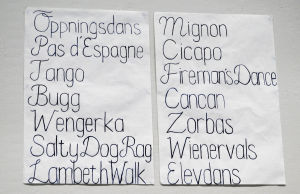 Öppningsdans
Pas d'Espagne
Tango
Bugg
Wengerka
Salty Dog Rag
Lambeth Walk
Mignon
Cicapo
Fireman's Dance
Cancan
Zorbas
Wienervals
Elevdans